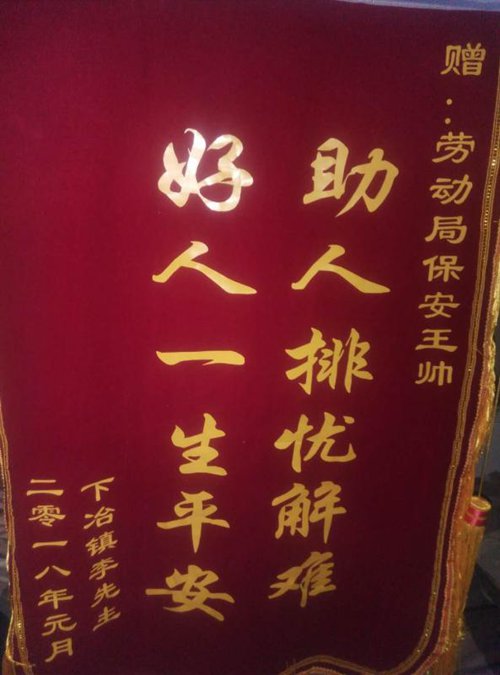 赠：劳动局保安王帅
助人排忧解难
好人一生平安
下冶镇李先生
二零一八年元月